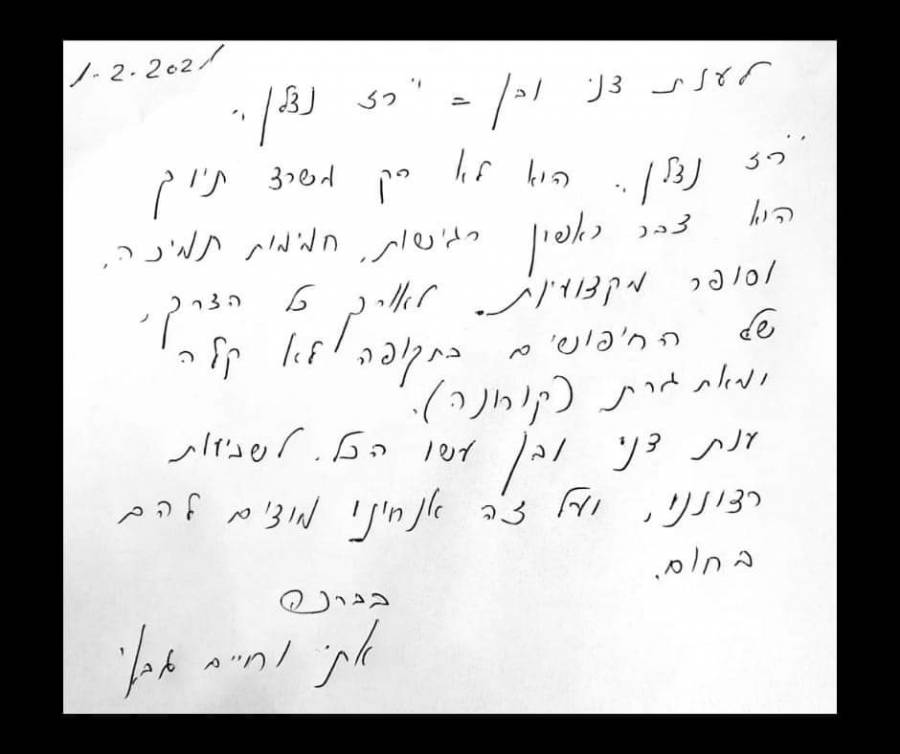 1.2.2021
לענת דני ובן = "רז נדלן"
"רז נדלן" הוא לא רק משרד תיווך
הוא דבר ראשון רגישות, חמימות תמיכה,
וסופר מקצועיות. לאורך כל הדרך,
של החיפושים בתקופה לא קלה
ומאתגרת (קורונה).
ענת דני ובן עשו הכל. לשביעות
רצוננו, ועל זה אנחינו מודים להם
בחום.
בברכה
אתי וחיים